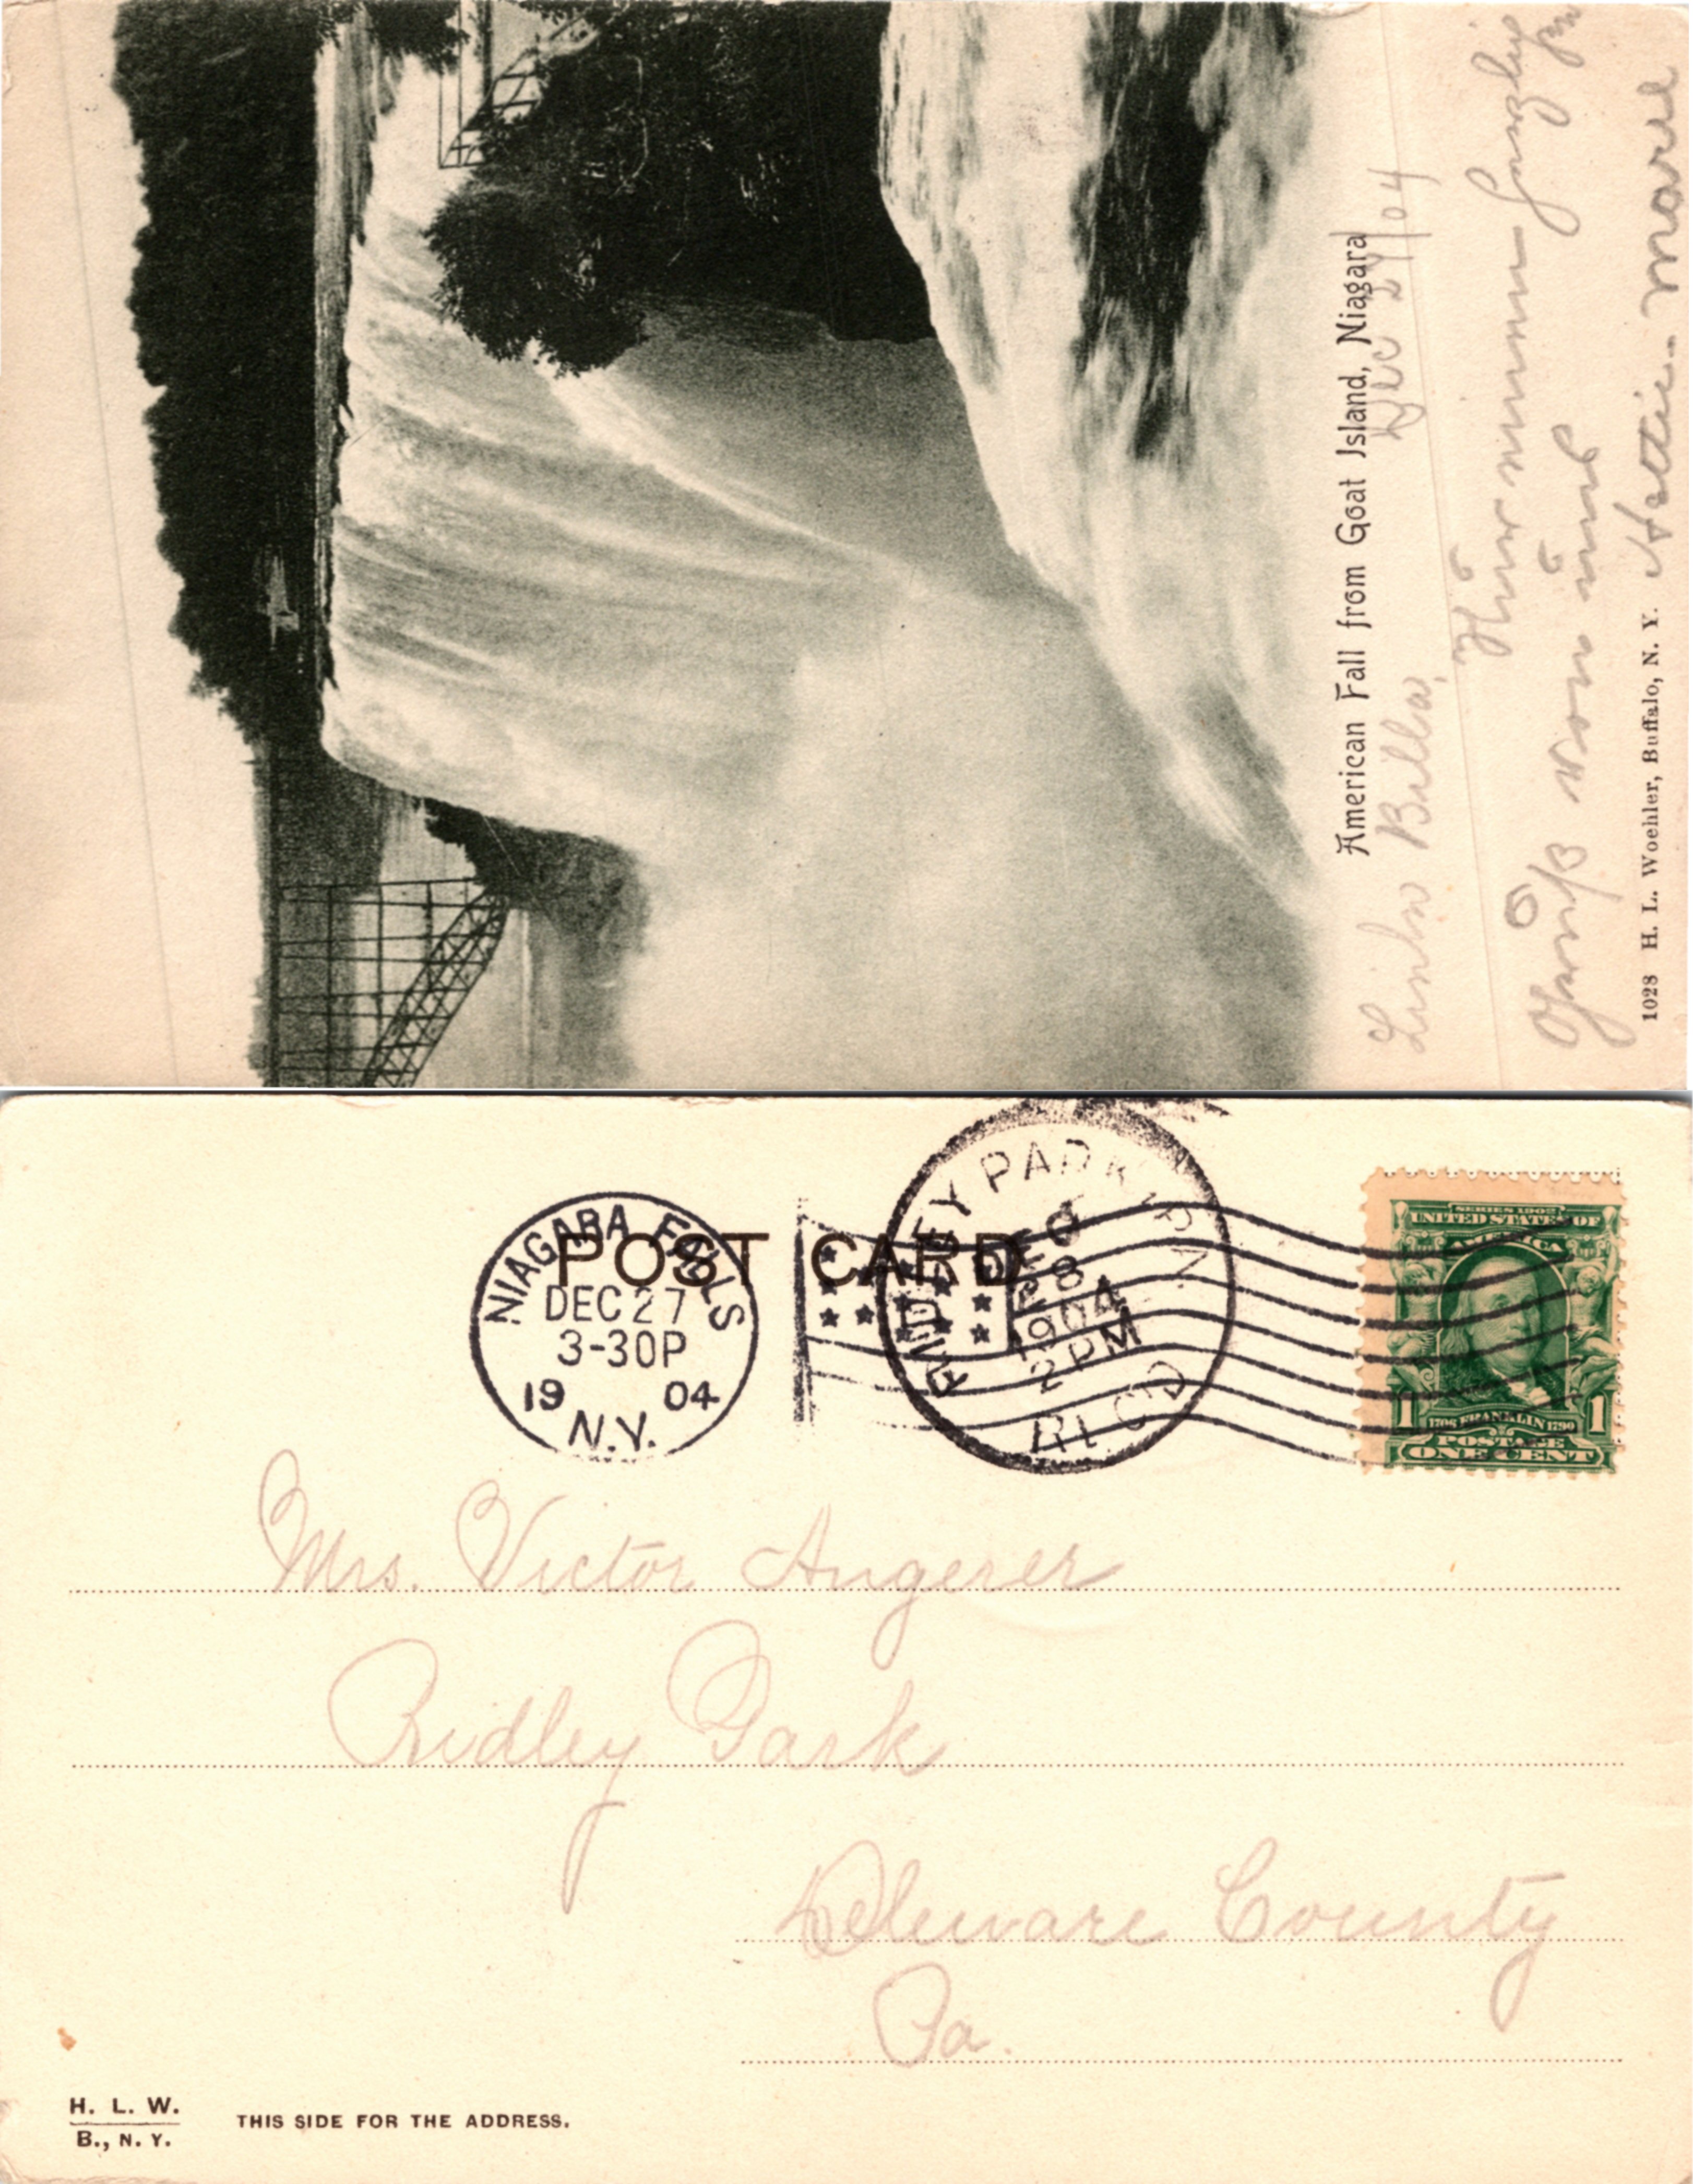 American Fall from Goat Island, Niagara
Dec 27/04
Liebe Bella,
Gruß von
Hattie - Marie
1028 H. L. Woehler, Buffalo, N. Y.
POST CARD
NIAGARA FALLS
DEC 27
3-30P
19 04
N.Y.
RIDLEY PARK, PA.
DEC
28
1904
2 PM
REC'D
SERIES 1902
UNITED STATES OF
AMERICA
1 1
1706 FRANKLIN 1790
POSTAGE
ONE CENT
Mrs. Victor Angerer
Ridley Park
Deleware County
Pa.
H. L. W.
B., N. Y.
THIS SIDE FOR THE ADDRESS.